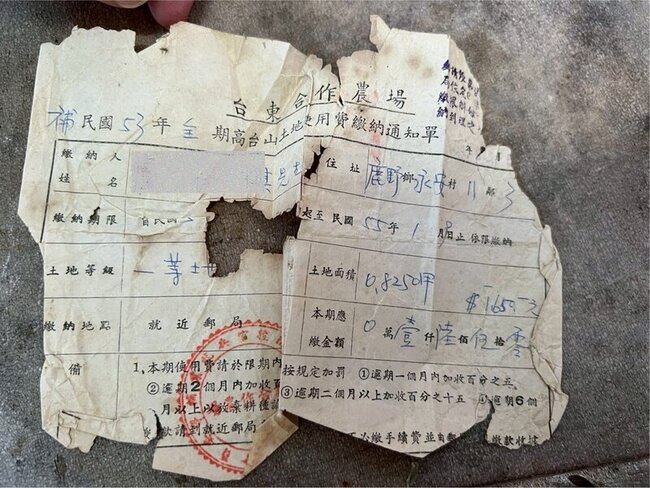 台東合作農場
補民國53年全期高台山土地使用費繳納通知單
繳納人姓名
住址 鹿野鄉永安村11鄰3
繳納期限 自民國
起至民國55年1月 日止依限繳納
土地等級 一等土地
土地面積 0.8250甲
$1650元
繳納地點 就近郵局
本期應繳金額 0萬壹仟陸佰伍拾零
備
1.本期使用費請於限期內
按規定加罰 ①逾期一個月內加收百分之五
②逾期2個月內加收百
③逾期二個月以上加收百分之十五 ④逾期6個
月以上以放棄耕
繳款請到就近郵局
以繳手續費並由郵
繳款收據